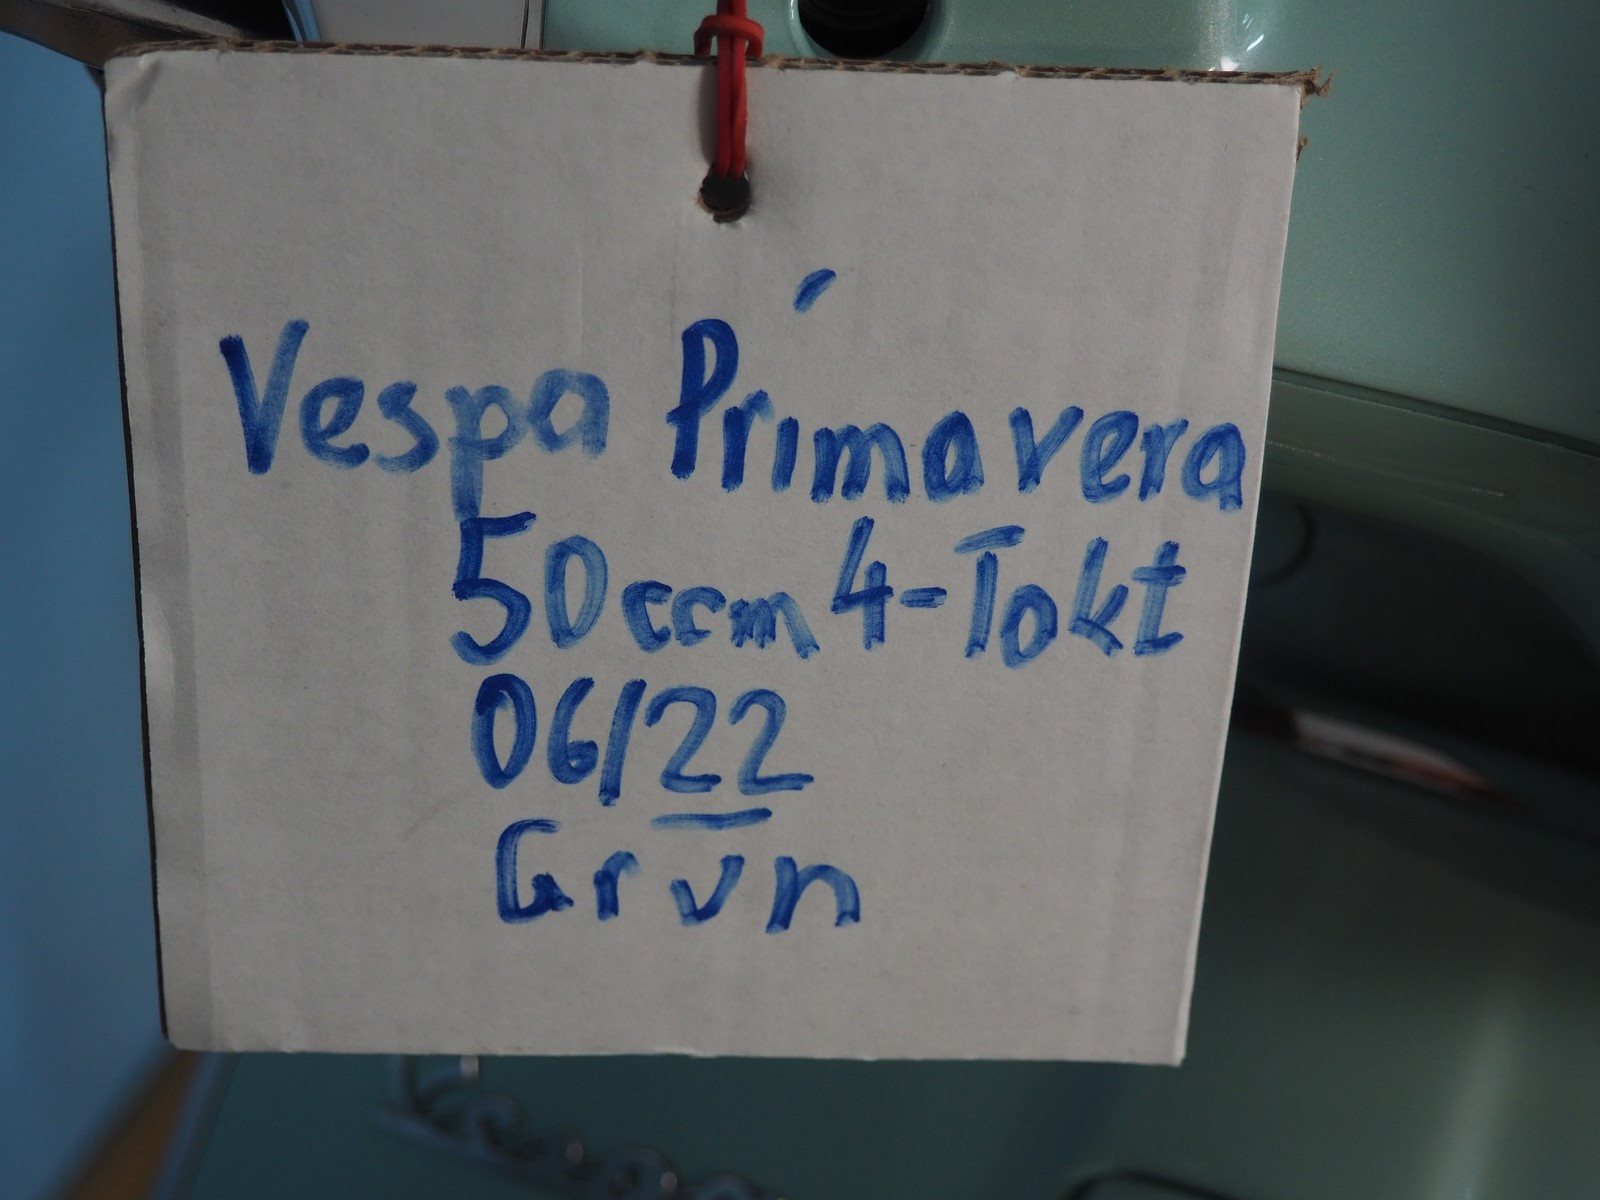 Vespa Primavera
50ccm 4-Takt
06/22
Grün